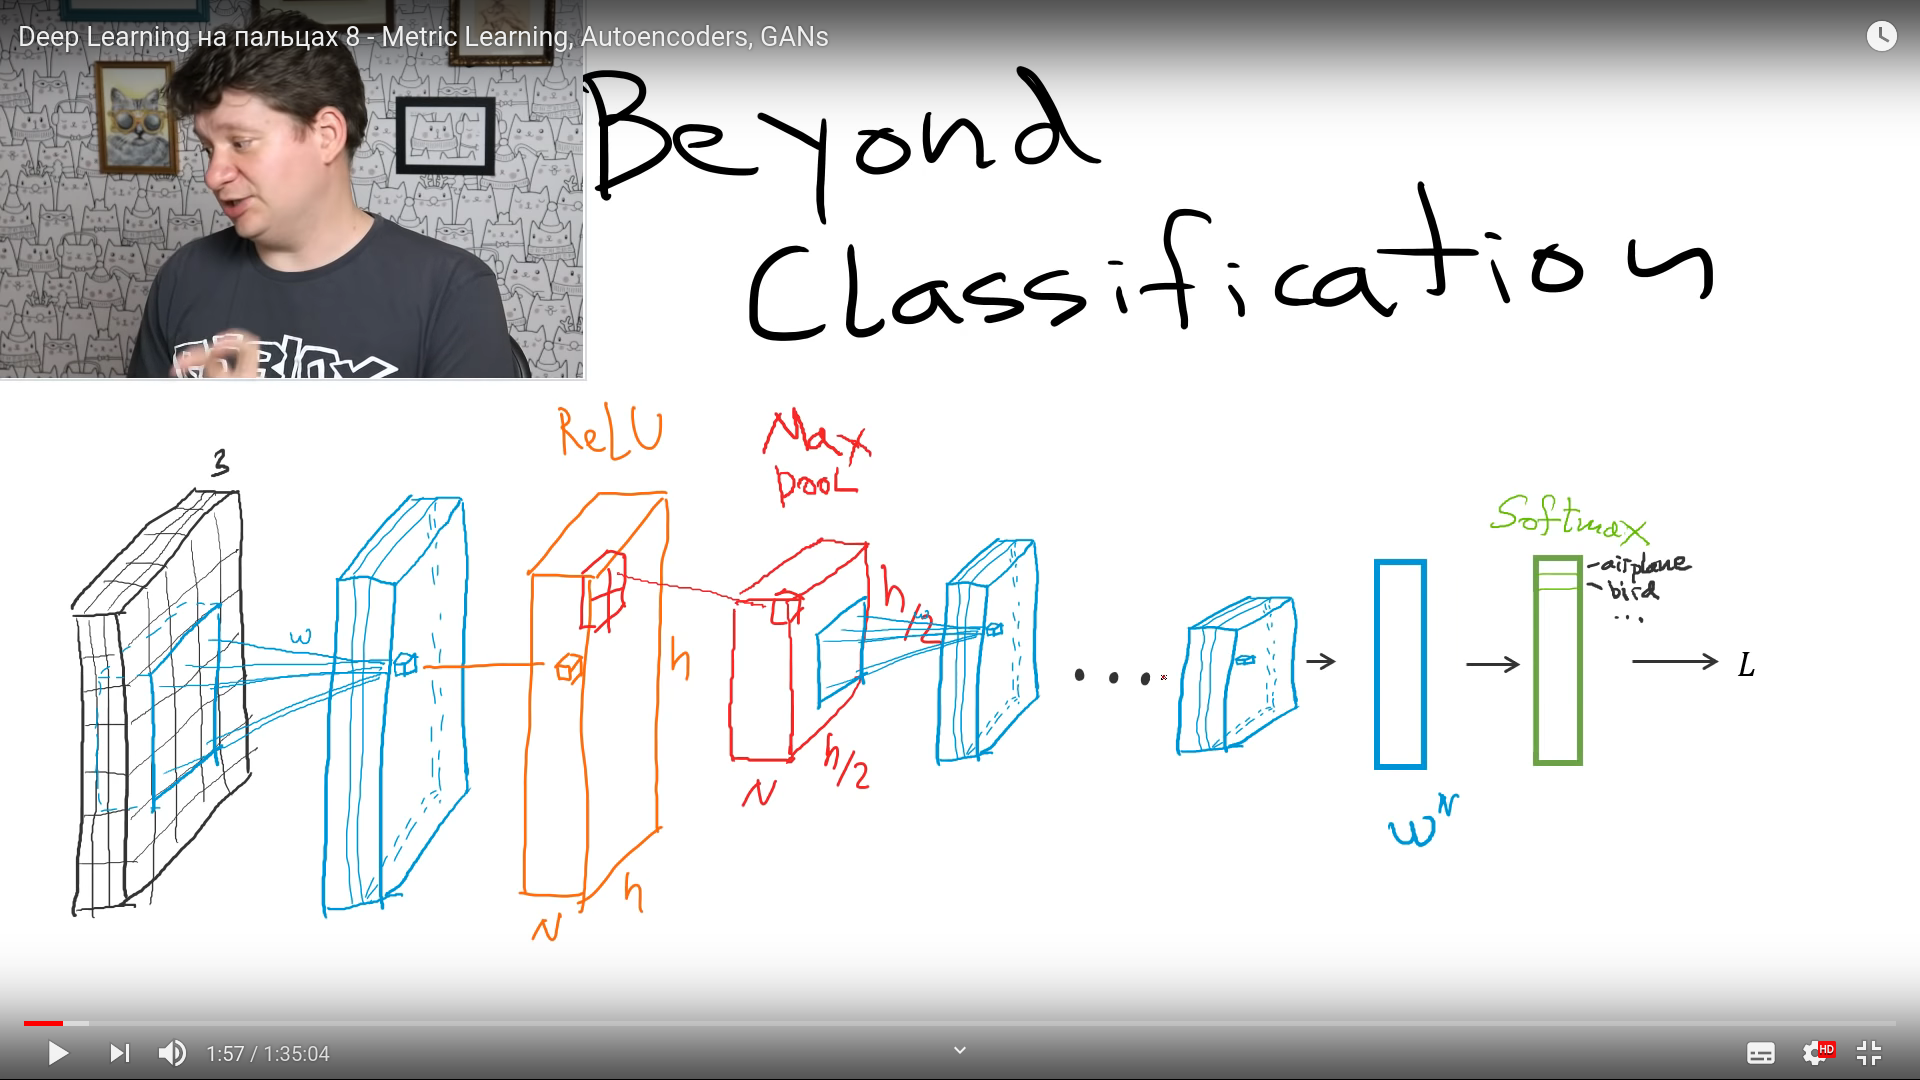 Deep Learning на пальцах 8 - Metric Learning, Autoencoders, GANs
Beyond
Classification
ReLU
Max
pool
3
Softmax
- airplane
- bird
...
w
w
h/2
h
L
h/2
N
w^N
h
N
1:57 / 1:35:04
HD